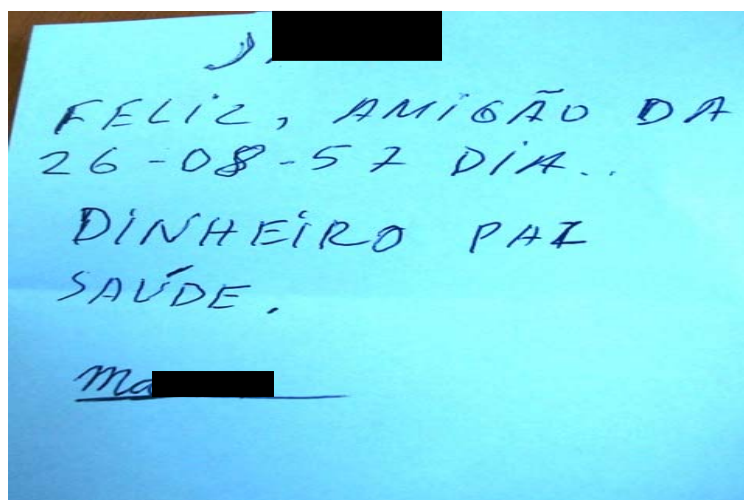 FELIZ, AMIGÃO DA
26-08-57 DIA..
DINHEIRO PAZ
SAÚDE.